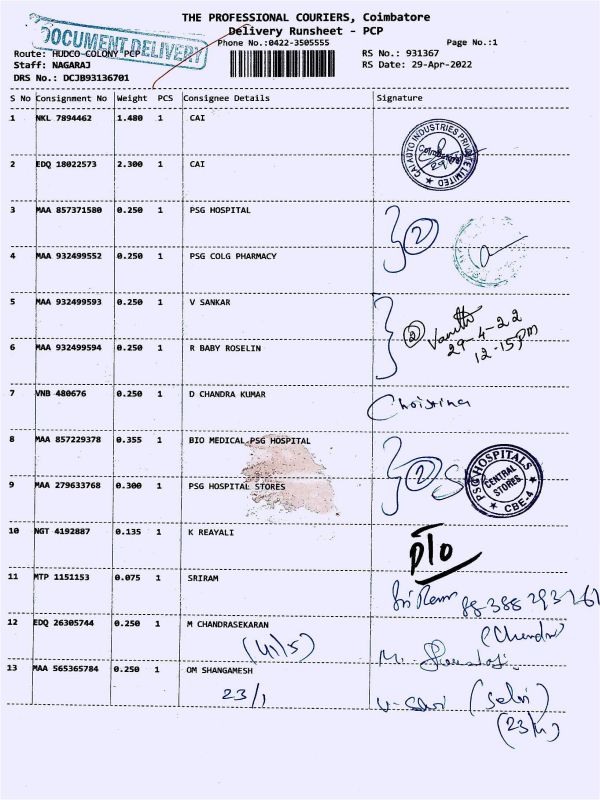 THE PROFESSIONAL COURIERS, Coimbatore
Delivery Runsheet - PCP
DOCUMENT DELIVERY
Phone No.:0422-3505555
Page No.:1
Route: HUDCO COLONY PCP
RS No.: 931367
Staff: NAGARAJ
RS Date: 29-Apr-2022
DRS No.: DCJB93136701
S No Consignment No Weight PCS Consignee Details Signature
1 NKL 7894462 1.480 1 CAI
CAI AUTO INDUSTRIES PRIVATE LIMITED
2 EDQ 18022573 2.300 1 CAI
3 MAA 857371580 0.250 1 PSG HOSPITAL
2
4 MAA 932499552 0.250 1 PSG COLG PHARMACY
5 MAA 932499593 0.250 1 V SANKAR
2
29-4-22
12-15pm
6 MAA 932499594 0.250 1 R BABY ROSELIN
7 VNB 480676 0.250 1 D CHANDRA KUMAR
Christina
8 MAA 857229378 0.355 1 BIO MEDICAL PSG HOSPITAL
2
PSG HOSPITALS CENTRAL STORES CBE-4
9 MAA 279633768 0.300 1 PSG HOSPITAL STORES
10 NGT 4192887 0.135 1 K REAYALI
PTO
11 MTP 1151153 0.075 1 SRIRAM
Sri Ram
12 EDQ 26305744 0.250 1 M CHANDRASEKARAN
13 MAA 565365784 0.250 1 OM SHANGAMESH
23/1
(Selvi)